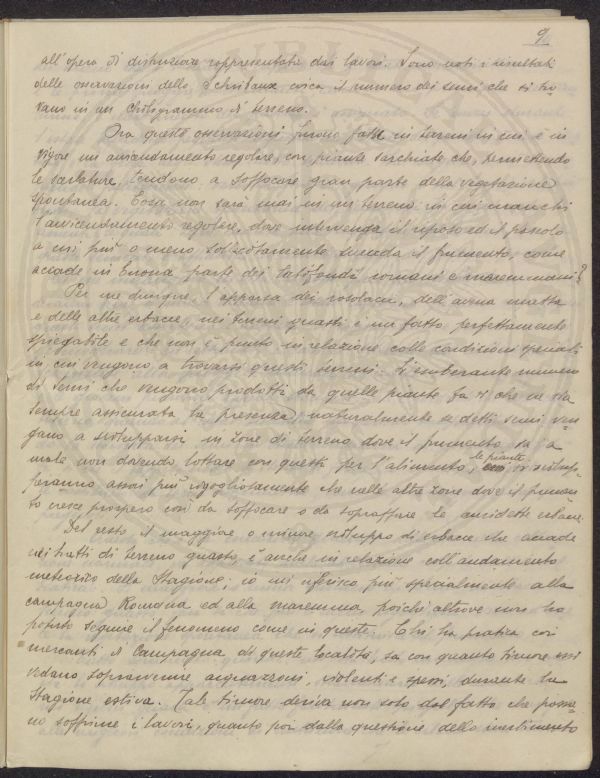 9
all'opera di distruzione rappresentata dai lavori. Sono noti i risultati
delle osservazioni dello Schribaux circa il numero dei semi che si tro-
vano in un Chilogrammo di terreno.
Ora queste osservazioni furono fatte in terreni in cui è in
vigore un avvicendamento regolare, con piante sarchiate che, permettendo
le sarchiature, tendono a soffocare gran parte della vegetazione
spontanea. Cosa non sarà mai in un terreno in cui manchi
l'avvicendamento regolare, dove intervenga il riposo ed il pascolo
a cui più o meno sollecitamente succeda il frumento, come
accade in buona parte dei latifondi romani e maremmani?
Per me dunque, l'apparsa dei rosolacci, dell'avena matta
e delle altre erbacce, nei terreni guasti è un fatto perfettamente
spiegabile e che non è punto in relazione colle condizioni speciali
in cui vengono a trovarsi questi terreni. L'esuberante numero
di semi che vengono prodotti da quelle piante fa sì che ne sia
sempre assicurata la presenza, naturalmente se detti semi ven-
gano a svilupparsi in zone di terreno dove il frumento va a
male non dovendo lottare con questi per l'alimento, le piante si svilup-
peranno assai più rigogliosamente che nelle altre zone dove il frumen-
to cresce prospero così da soffocare o da sopraffare le anzidette erbacce.
Del resto il maggiore o minore sviluppo di erbacce che accade
nei tratti di terreno guasto, è anche in relazione coll'andamento
meteorico della stagione; io mi riferisco più specialmente alla
campagna Romana ed alla maremma, poichè altrove non ho
potuto seguire il fenomeno come in queste. Chi ha pratica coi
mercanti di Campagna di queste località, sa con quanto timore essi
vedano sopravvenire acquazzoni, violenti e spessi, durante la
stagione estiva. Tale timore deriva non solo dal fatto che posso-
no soffrirne i lavori, quanto poi dalla questione dello inerbimento